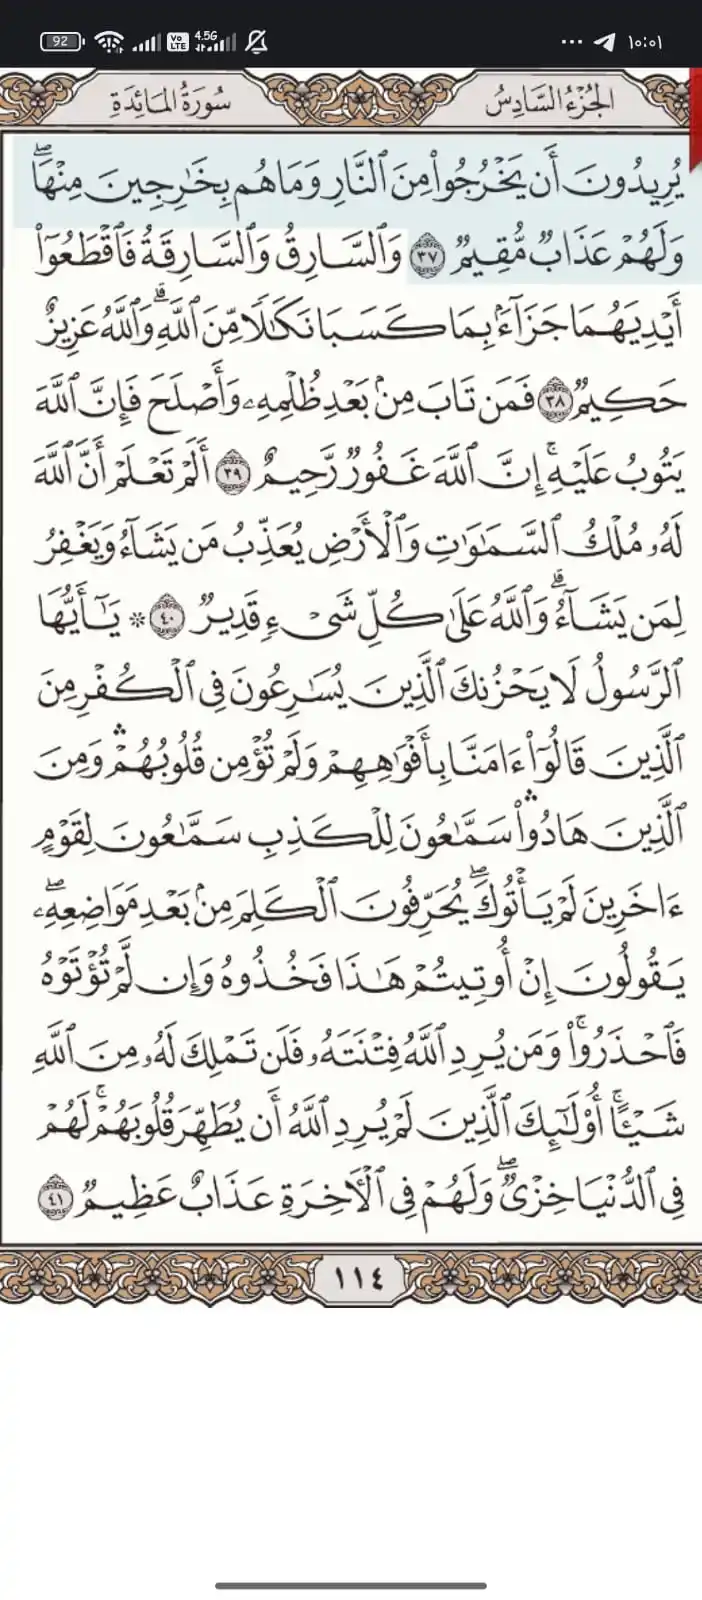 92 Vo LTE 4.5G ... ١٠:٥١
الجُزْءُ السَّادِسُ سُورَةُ المَائِدَةِ
يُرِيدُونَ أَن يَخْرُجُوا۟ مِنَ ٱلنَّارِ وَمَا هُم بِخَٰرِجِينَ مِنْهَاۖ
وَلَهُمْ عَذَابٌ مُّقِيمٌ ٣٧ وَٱلسَّارِقُ وَٱلسَّارِقَةُ فَٱقْطَعُوٓا۟
أَيْدِيَهُمَا جَزَآءًۢ بِمَا كَسَبَا نَكَٰلًا مِّنَ ٱللَّهِۗ وَٱللَّهُ عَزِيزٌ
حَكِيمٌ ٣٨ فَمَن تَابَ مِنۢ بَعْدِ ظُلْمِهِۦ وَأَصْلَحَ فَإِنَّ ٱللَّهَ
يَتُوبُ عَلَيْهِۚ إِنَّ ٱللَّهَ غَفُورٌ رَّحِيمٌ ٣٩ أَلَمْ تَعْلَمْ أَنَّ ٱللَّهَ
لَهُۥ مُلْكُ ٱلسَّمَٰوَٰتِ وَٱلْأَرْضِ يُعَذِّبُ مَن يَشَآءُ وَيَغْفِرُ
لِمَن يَشَآءُۗ وَٱللَّهُ عَلَىٰ كُلِّ شَىْءٍ قَدِيرٌ ٤٠ * يَٰٓأَيُّهَا
ٱلرَّسُولُ لَا يَحْزُنكَ ٱلَّذِينَ يُسَٰرِعُونَ فِى ٱلْكُفْرِ مِنَ
ٱلَّذِينَ قَالُوٓا۟ ءَامَنَّا بِأَفْوَٰهِهِمْ وَلَمْ تُؤْمِن قُلُوبُهُمْۛ وَمِنَ
ٱلَّذِينَ هَادُوا۟ۛ سَمَّٰعُونَ لِلْكَذِبِ سَمَّٰعُونَ لِقَوْمٍ
ءَاخَرِينَ لَمْ يَأْتُوكَۖ يُحَرِّفُونَ ٱلْكَلِمَ مِنۢ بَعْدِ مَوَاضِعِهِۦۖ
يَقُولُونَ إِنْ أُوتِيتُمْ هَٰذَا فَخُذُوهُ وَإِن لَّمْ تُؤْتَوْهُ
فَٱحْذَرُوا۟ۚ وَمَن يُرِدِ ٱللَّهُ فِتْنَتَهُۥ فَلَن تَمْلِكَ لَهُۥ مِنَ ٱللَّهِ
شَيْـًٔاۚ أُو۟لَٰٓئِكَ ٱلَّذِينَ لَمْ يُرِدِ ٱللَّهُ أَن يُطَهِّرَ قُلُوبَهُمْۚ لَهُمْ
فِى ٱلدُّنْيَا خِزْىٌۖ وَلَهُمْ فِى ٱلْـَٔاخِرَةِ عَذَابٌ عَظِيمٌ ٤١
١١٤